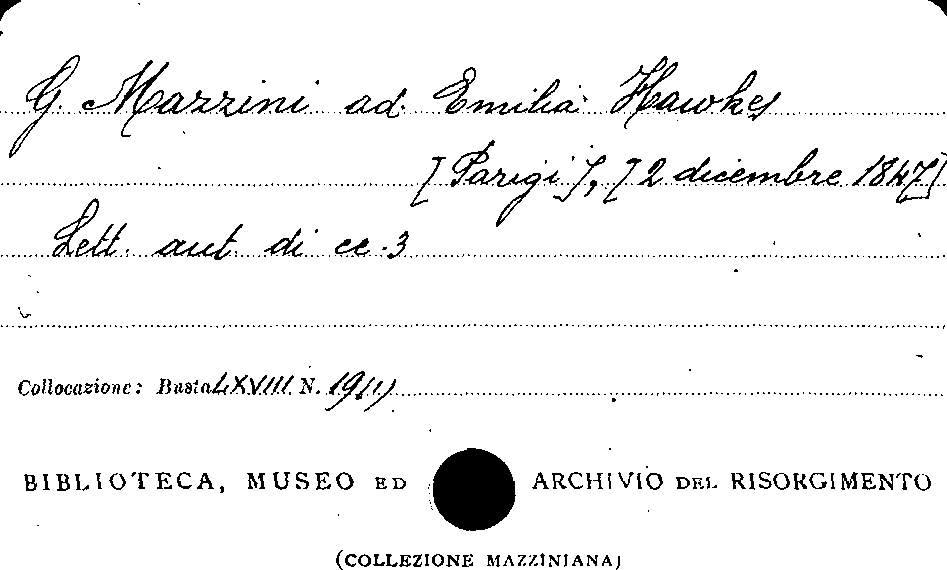 G. Mazzini ad Emilia Hawkes
[Parigi], [2 dicembre 1847]
Lett. aut. di cc. 3
Collocazione: Busta LXVIII N. 19(1)
BIBLIOTECA, MUSEO ED ARCHIVIO DEL RISORGIMENTO
(COLLEZIONE MAZZINIANA)